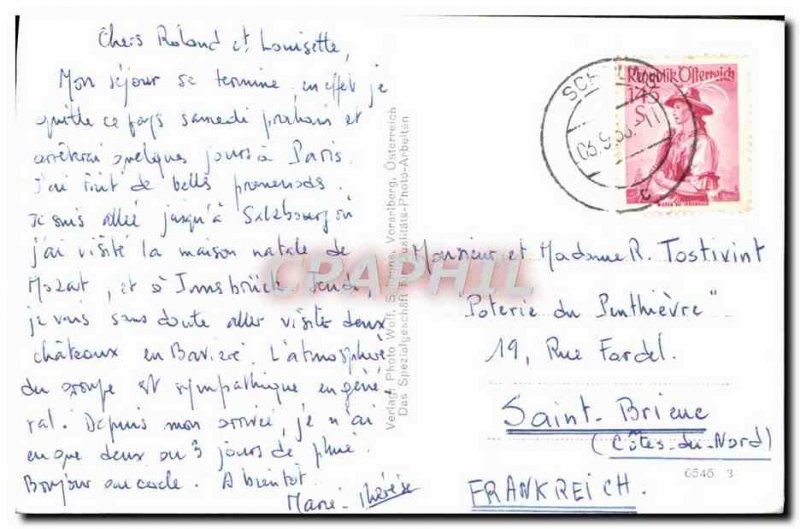 Chers Roland et Louisette,
Mon séjour se termine, en effet je
quitte ce pays samedi prochain et
arrêterai quelques jours à Paris.
J'ai fait de belles promenades.
Je suis allée jusqu'à Salzbourg où
j'ai visité la maison natale de
Mozart, et à Innsbrück.
je vais sans doute aller visiter deux
châteaux en Bavière. L'atmosphère
du groupe est sympathique en géné-
ral. Depuis mon arrivée, je n'ai
eu que deux ou 3 jours de pluie.
Bonjour au cercle. A bientôt.
Marie-Thérèse
Verlag: Photo Wolff, Vorarlberg, Österreich
Das Spezialgeschäft Qualitäts-Photo-Arbeiten
Republik Österreich
1.45
S
SCH
Monsieur et Madame R. Tostivint
"Poterie du Penthièvre"
19, Rue Fardel.
Saint-Brieuc
(Côtes-du-Nord)
FRANKREICH.
6546 3
CPAPHIL